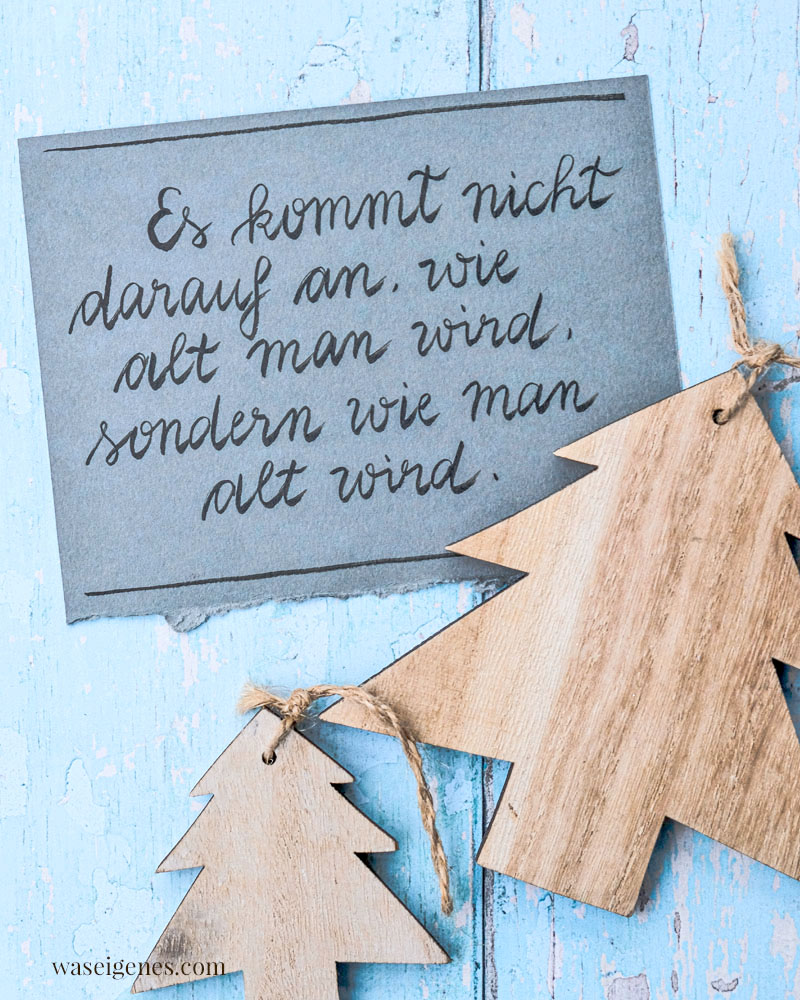 Es kommt nicht
darauf an, wie
alt man wird,
sondern wie man
alt wird.
waseigenes.com